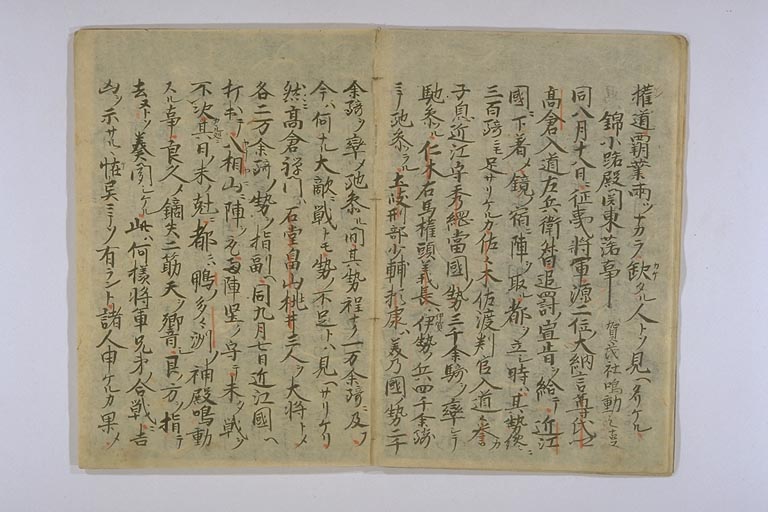 権道覇業両ツナカラ欽タル人トソ見ヘタリケル
錦小路殿関東落事 賀茂社鳴動之事
同八月十八日ニ征夷将軍源二位大納言尊氏
高倉入道左兵衛督追罰ノ宣旨ヲ給テ近江
國下着メ鏡宿ニ陣ヲ取ル都ヲ立シ時ハ其勢纔ニ
三百騎ニモ足サリケルカ佐々木佐渡判官入道々誉カ
子息近江守秀綱當國ノ勢三千余騎ヲ率シテ
馳参ル仁木右馬権頭義長ハ伊賀伊勢ノ兵四千余騎
ニテ馳参ル土岐刑部少輔頼康ハ美乃國ノ勢二千
余騎ヲ率メ馳参ル間其勢程ナク一万余騎ニ及フ
今ハ何ナル大敵ニ戦トモ勢ノ不足トハ見ヘサリケリ
然ニ高倉禅門ハ石堂畠山桃井三人ヲ大将トメ
各二万余騎ノ勢ヲ指副ヘ同九月七日近江國ヘ
打出テ八相山ニ陣ヲ取ル両陣堅ク守テ未タ戦ヲ
不決其日ノ未尅ニ都ニハ鴨ノ多々洲ノ神殿鳴動
スル事良久メ鏑矢二筋天ヲ響シ艮ノ方ヲ指テ
去ヌトソ奏聞シケル此ハ何様将軍兄弟ノ合戦ニ吉
凶ヲ示サルヽ怪異ニテソ有ラント諸人申ケルカ果メ